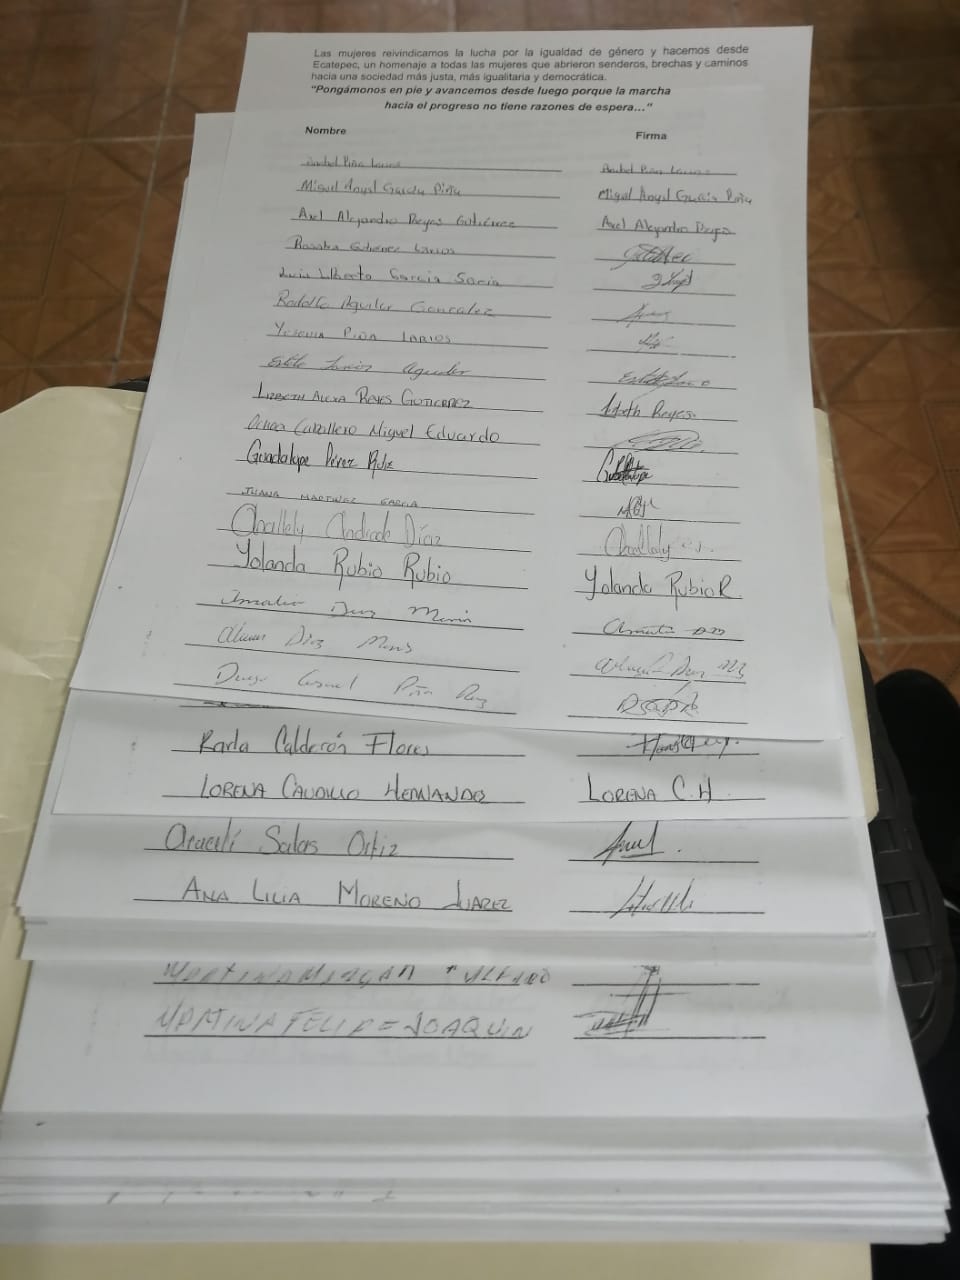 Las mujeres reivindicamos la lucha por la igualdad de género y hacemos desde
Ecatepec, un homenaje a todas las mujeres que abrieron senderos, brechas y caminos
hacia una sociedad más justa, más igualitaria y democrática.
"Pongámonos en pie y avancemos desde luego porque la marcha
hacia el progreso no tiene razones de espera..."
Nombre Firma
Piña Larios
Miguel Angel Garcia Piña Miguel Angel Garcia Piña
Axel Alejandro Reyes Gutierrez Axel Alejandro Reyes
Gutierrez Larios
Luis Alberto Garcia
Rodolfo Aguilar Gonzalez
Yesenia Piña Larios
Lizbeth Alexa Reyes Gutierrez Lizbeth Reyes
Ochoa Caballero Miguel Eduardo
Guadalupe Pérez Ruiz Guadalupe
Juana Martinez Garcia
Challely Andrade Díaz Challely
Yolanda Rubio Rubio Yolanda Rubio R
Diaz
Diaz
Piña
Karla Calderón Flores
Lorena Caudillo Hernandez Lorena C.H
Araceli Salas Ortiz
Ana Lilia Moreno Juarez
Martina Felipe Joaquin